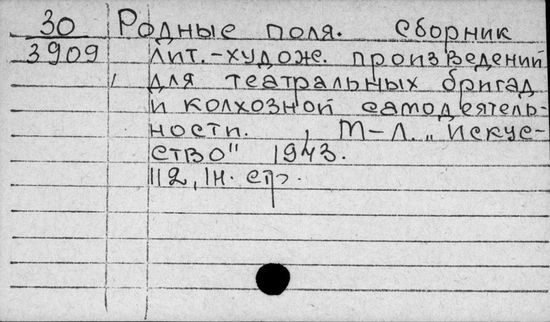 30 Родные поля. Сборник
3909 лит.-художе. произведений
для театральных бригад
и колхозной самодеятель-
ности. , М-Л. „Искус-
ство" 1943.
112, IН. стр.